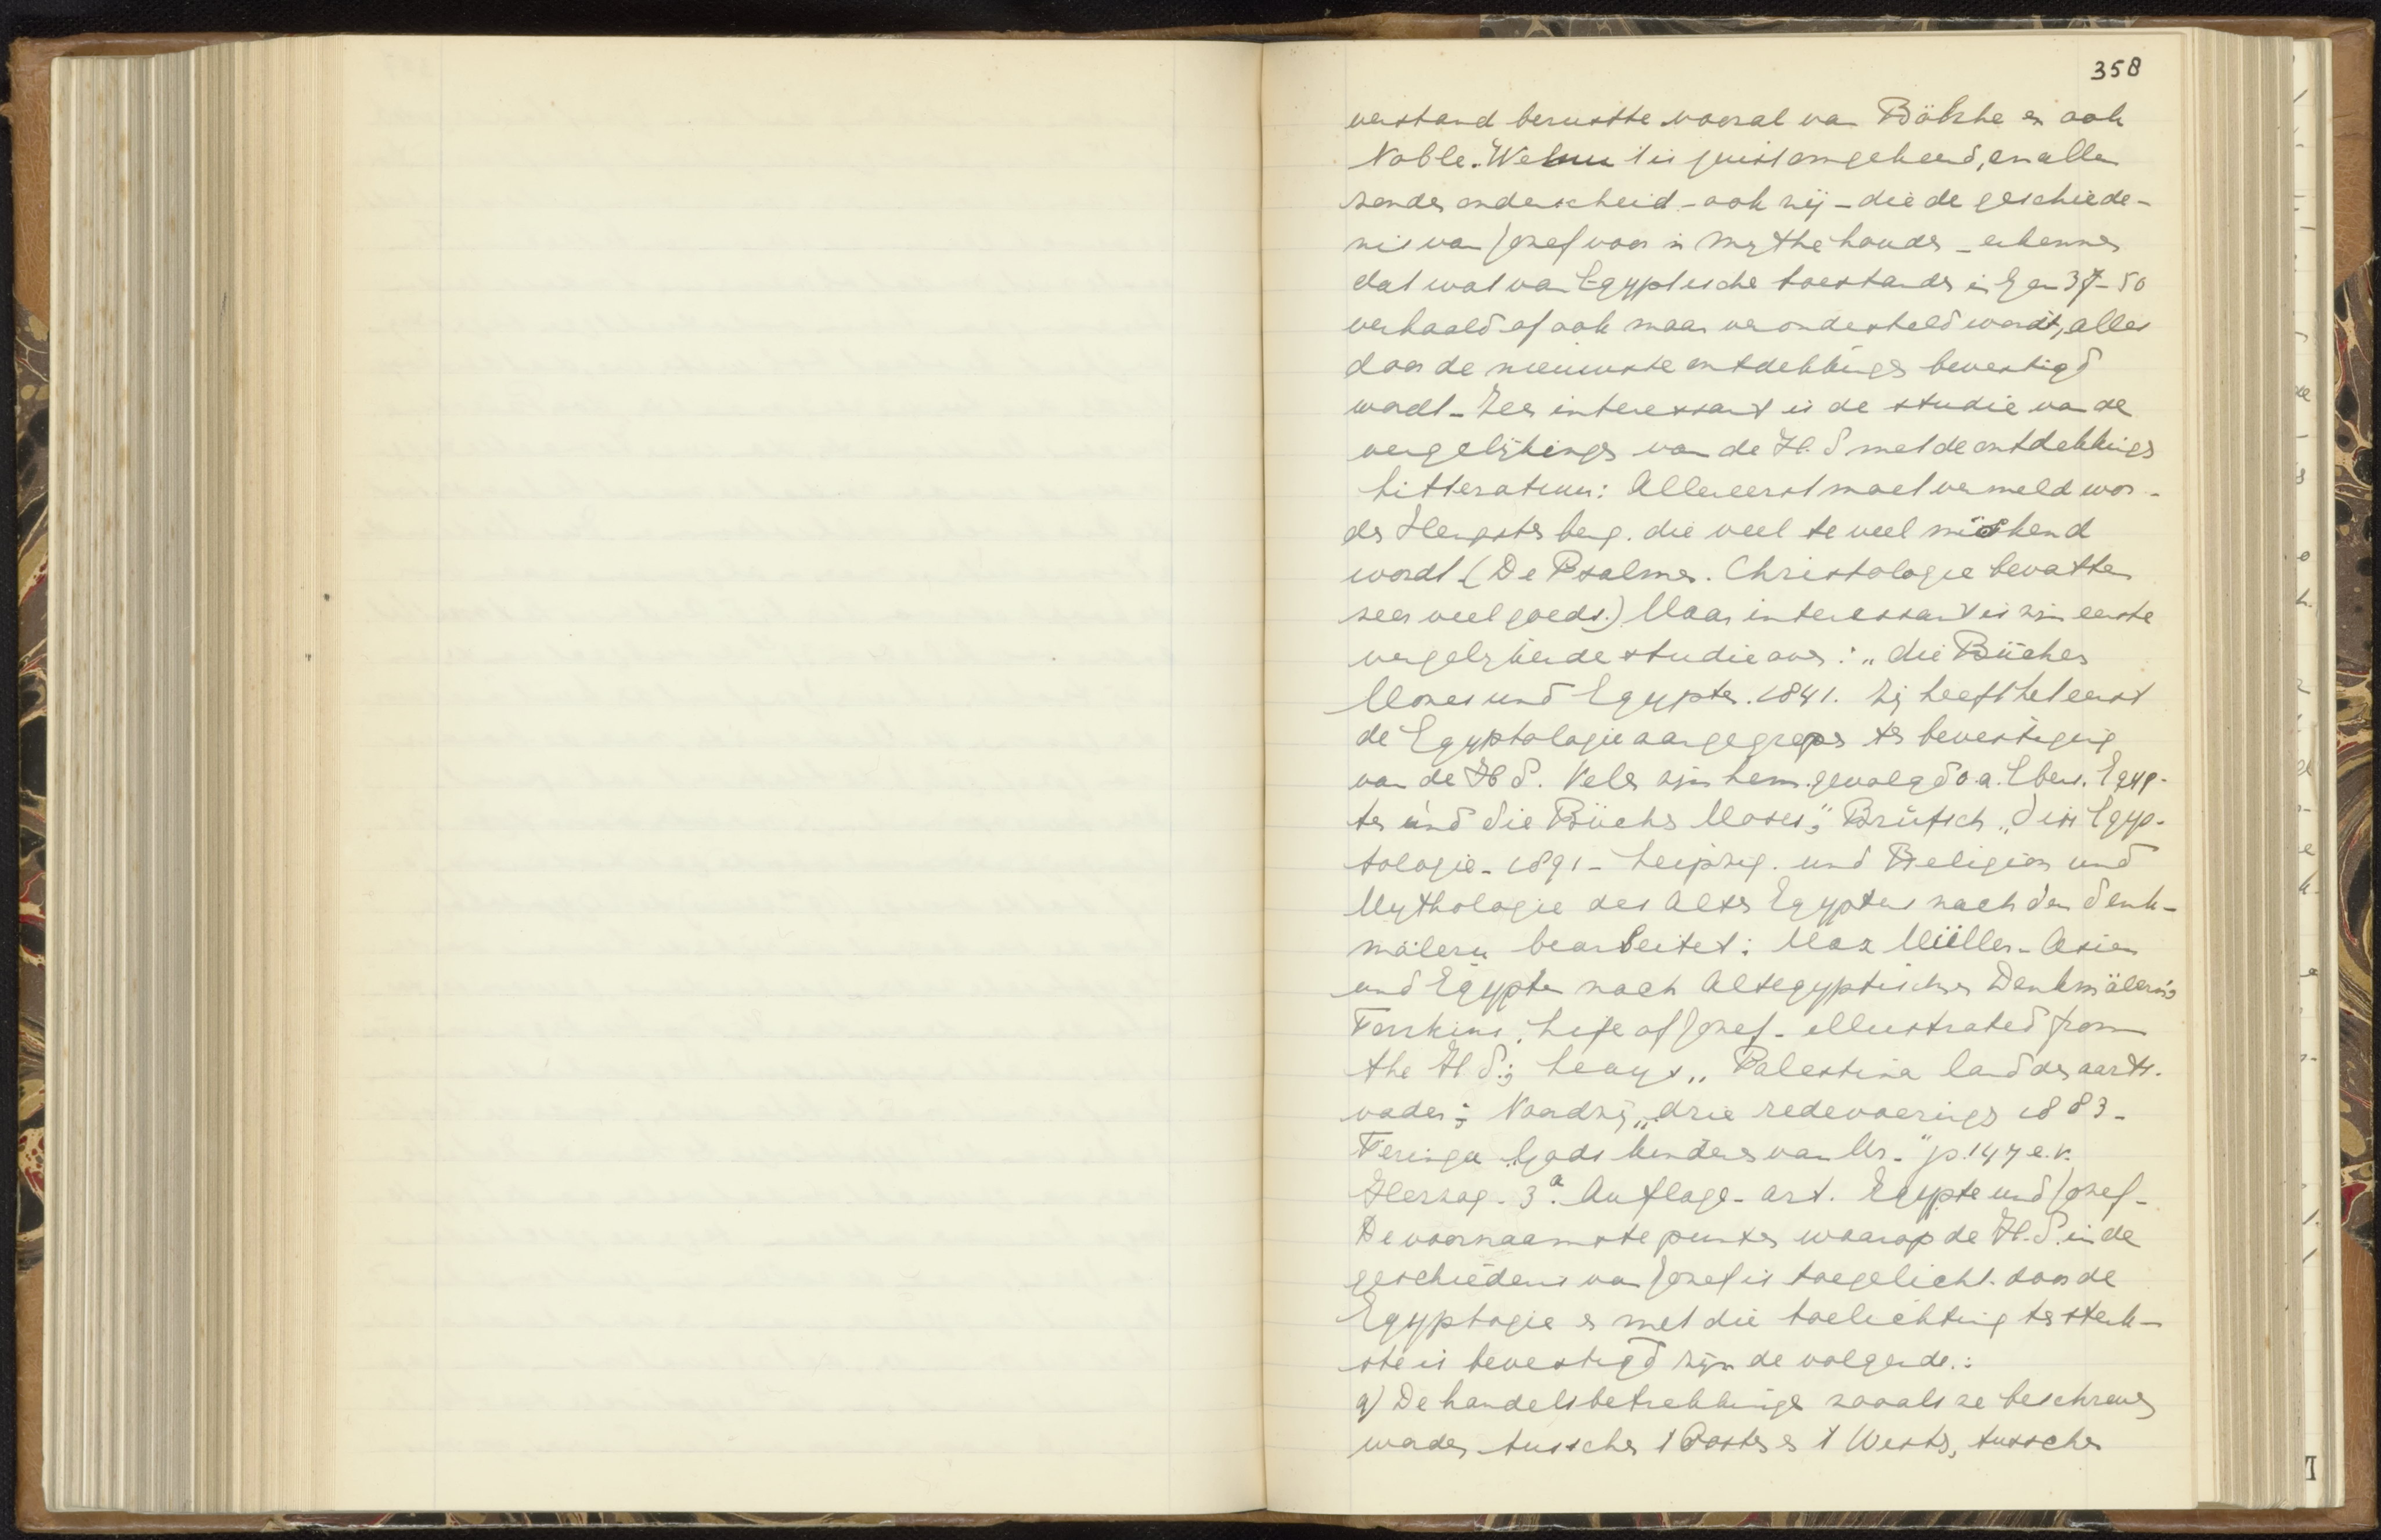 358
verstand berustte vooral van Böhshe en ook
Noble. Welnu 't is juist omgekeerd, en allen
zonder onderscheid - ook zij - die de geschiede-
nis van Jozef voor 'n mythe houden - erkennen
dat wat van Egyptische toestanden in Gen 37-50
verhaald of ook maar verondersteld wordt, alles
door de nieuwste ontdekkingen bevestigd
wordt - Zeer interessant is de studie van de
vergelijkingen van de H. S met de ontdekkingen
Litteratuur: Allereerst moet vermeld wor-
den Hengstenberg. die veel te veel miskend
wordt (De Psalmen. Christologie bevatten
zeer veel goeds.) Maar interessant is zijn eerste
vergelijkende studie over: „die Bücher
Moses und Egypten. 1841. Hij heeft het eerst
de Egyptologie aangegrepen ter bevestiging
van de H S. Velen zijn hem gevolgd o.a. Ebers. Egyp-
ten und die Bücher Moses"; Brugsch „Die Egyp-
tologie - 1891 - Leipzig. und Religion und
Mythologie des Alten Egypten nach den Denk-
mälern bearbeitet: Max Müller - Asien
und Egypten nach Altegyptischen Denkmälern";
Tomkins, Life of Jozef - illustrated from
the H S.; „Palestina land der aarts-
vaders; Noordzij „drie redevoeringen 1883 -
Feringa „Gods kinderen van Ur." p. 147 e.v.
Herzog - 3e Auflage - art. Egypte und Jozef -
De voornaamste punten waarop de H. S. in de
geschiedenis van Jozef is toegelicht door de
Egyptogie en met die toelichting ten sterk-
ste is bevestigd zijn de volgende:
a) De handelsbetrekkingen zooals ze beschreven
worden tusschen 't Oosten en 't Westen, tusschen